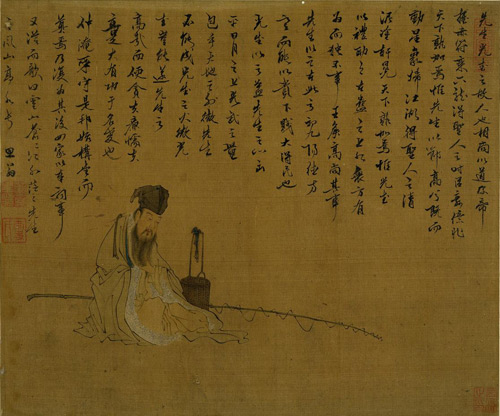 先生光武之故人也相尚以道及帝
握赤符乘六龍得聖人之時臣妾億兆
天下孰加焉惟先生以節高之既而
動星象歸江湖得聖人之清
泥塗軒冕天下孰加焉惟光武
以禮下之在蠱之上九衆方有
為而獨不事王侯高尚其事
先生以之在屯之初九陽德方
亨而能以貴下賤大得民也
光武以之蓋先生之心出
乎日月之上光武之量
包乎天地之外微先生
不能成光武之大微光
武豈能遂先生之
高哉而使貪夫廉懦夫
立是大有功於名教也
仲淹來守是邦始構堂而
奠焉乃復為其後四家以奉祠事
又從而歌曰雲山蒼蒼江水泱泱先生
之風山高水長 思翁